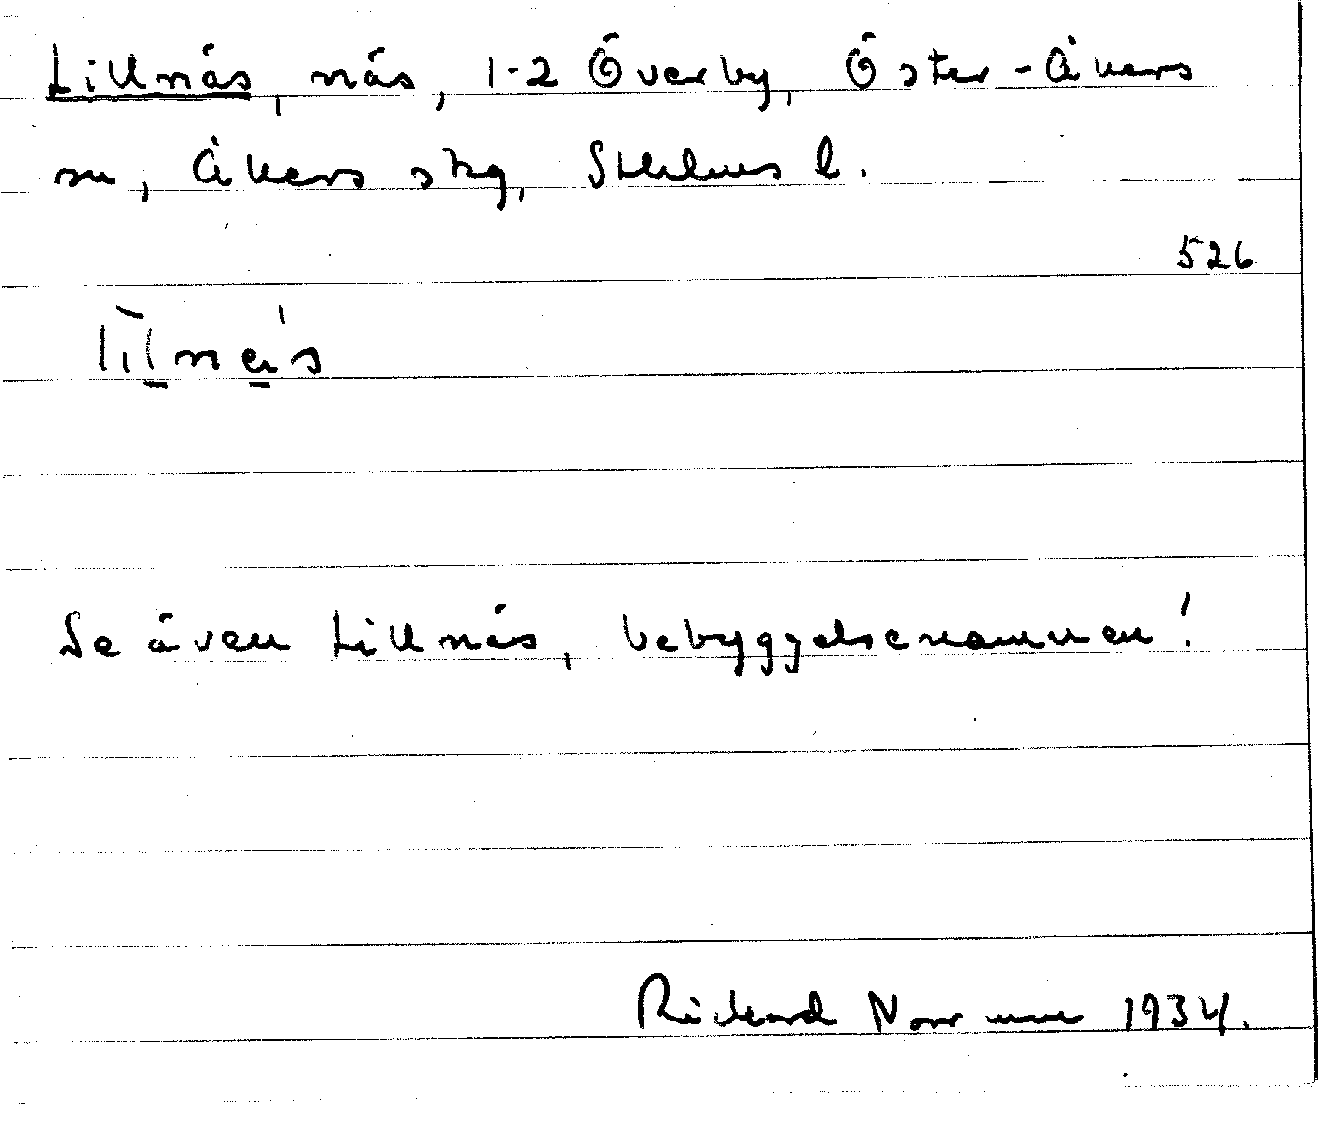 Lillnäs, näs, 1-2 Överby, Öster-Åkers
sn, Åkers skg, Sthlms l.
526
Se även Lillnäs, bebyggelsenamnen!
Rickard Norrman 1934.